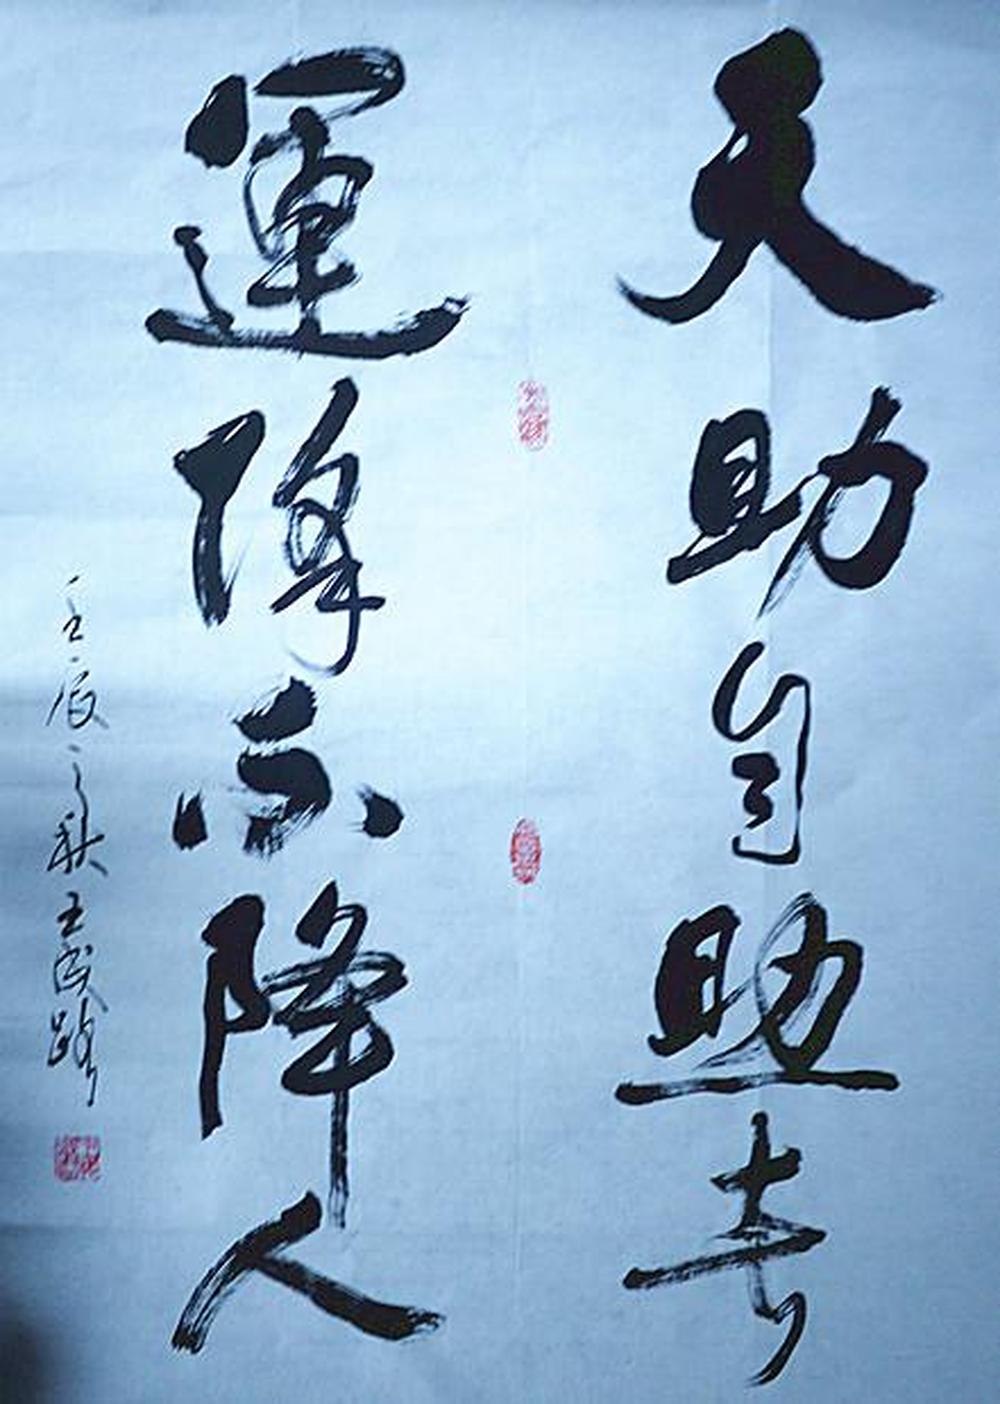 天助自助者
運降不降人
壬辰之秋王成路